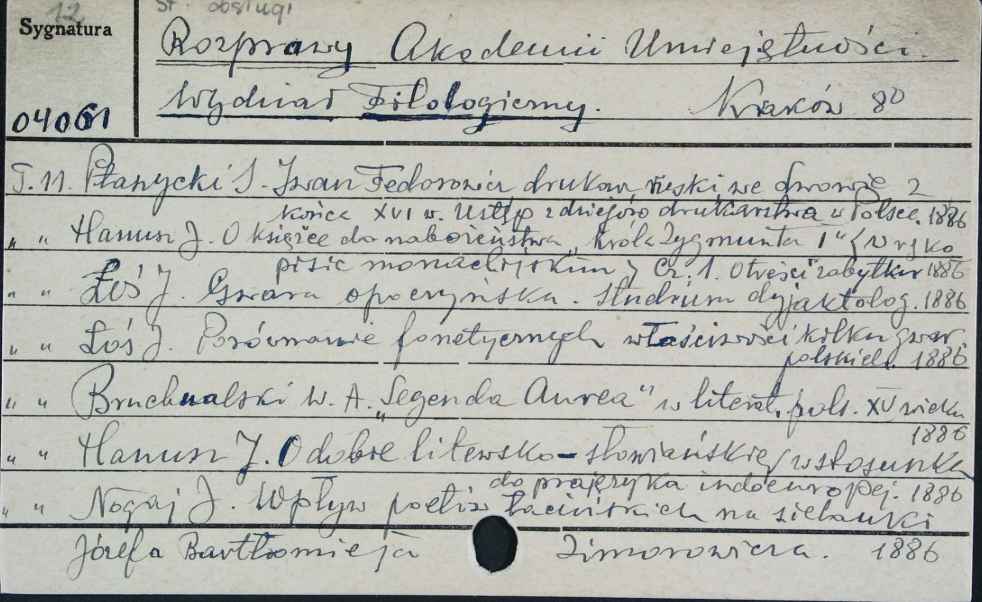 12 St. obsługi
Sygnatura
Rozprawy Akademii Umiejętności.
04061
Wydział Filologiczny. Kraków 8º
T. 11. Ptaszycki S. Iwan Fedorowicz drukarz ruski we Lwowie z
końca XVI w. Ustęp z dziejów drukarstwa w Polsce. 1886
„ „ Hanusz J. O książce do nabożeństwa króla Zygmunta I" (W ręko
pisie monachijskim) Cz. 1. O treści zabytku 1886
„ „ Łoś J. Gwara opoczyńska. Studium dyjalektolog. 1886
„ „ Łoś J. Porównanie fonetycznych właściwości kilku gwar.
polskich. 1886
„ „ Bruchnalski W. A. „Legenda Aurea" w literat. pols. XV wieku
1886
„ „ Hanusz J. O dobie litewsko-słowiańskiej w stosunku
do prajęzyka indoeuropej. 1886
„ „ Nogaj J. Wpływ poetów łacińskich na sielanki
Józefa Bartłomieja Zimorowicza. 1886